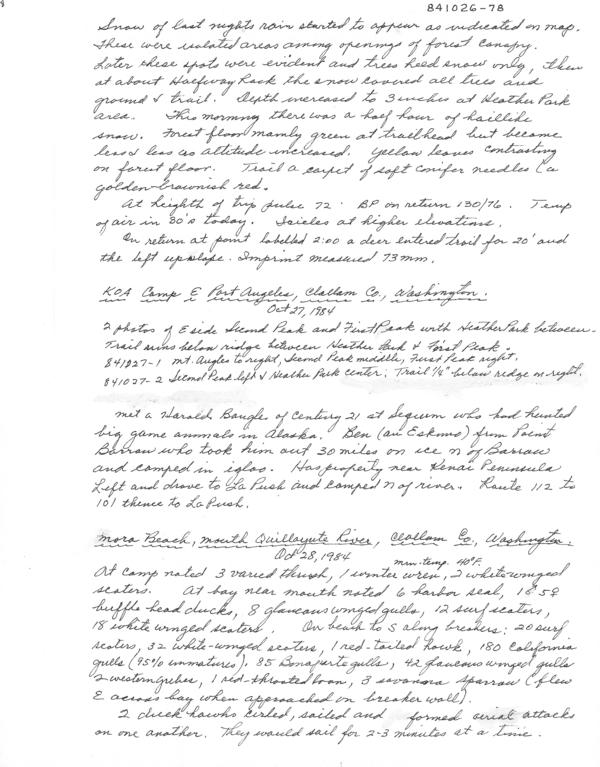 841026-78
Snow of last nights rain started to appear as indicated on map.
These were isolated areas among openings of forest canopy.
Later these spots were evident and trees held snow only, then
at about Halfway Rock the snow covered all trees and
ground & trail. Depth increased to 3 inches at Heather Park
area. This morning there was a half hour of haillike
snow. Forest floor mainly green at trailhead but became
less & less as altitude increased. Yellow leaves contrasting
on forest floor. Trail a carpet of soft conifer needles (a
golden-brownish red.
At heighth of trip pulse 72. BP on return 130/76. Temp
of air in 30's today. Icicles at higher elevations.
On return at point labelled 2:00 a deer entered trail for 20' and
the left upslope. Imprint measured 73mm.
KOA Camp E Port Angeles, Clallam Co., Washington.
Oct 27, 1984
2 photos of E side Second Peak and First Peak with Heather Park between.
Trail runs below ridge between Heather Park & First Peak.
841027-1 Mt. Angles to right, Second Peak middle, First Peak right.
841027-2 Second Peak left & Heather Park center. Trail 1/4" below ridge on right.
Met a Harold Baugle of Century 21 at Sequim who had hunted
big game animals in Alaska. Ben (an Eskimo) from Point
Barrow who took him out 30 miles on ice N of Barrow
and camped in igloo. Has property near Kenai Peninsula
Left and drove to La Push and camped N of river. Route 112 to
101 thence to La Push.
Mora Beach, mouth Quillayute River, Clallam Co., Washington.
Oct 28, 1984 min. temp. 40°F.
At camp noted 3 varied thrush, 1 winter wren, 2 white-winged
scoters. At bay near mouth noted 6 harbor seal,
buffle head ducks, 8 glaucous winged gulls, 12 surf scoters,
18 white winged scoters. On beach to S along breakers: 20 surf
scoters, 32 white-winged scoters, 1 red-tailed hawk, 180 California
gulls (95% immatures). 85 Bonaparte gulls, 42 glaucous winged gulls
2 western grebes, 1 red-throated loon, 3 savanna sparrow (flew
E across bay when approached on breaker wall).
2 duck hawks circled, sailed and formed aerial attacks
on one another. They would sail for 2-3 minutes at a time.